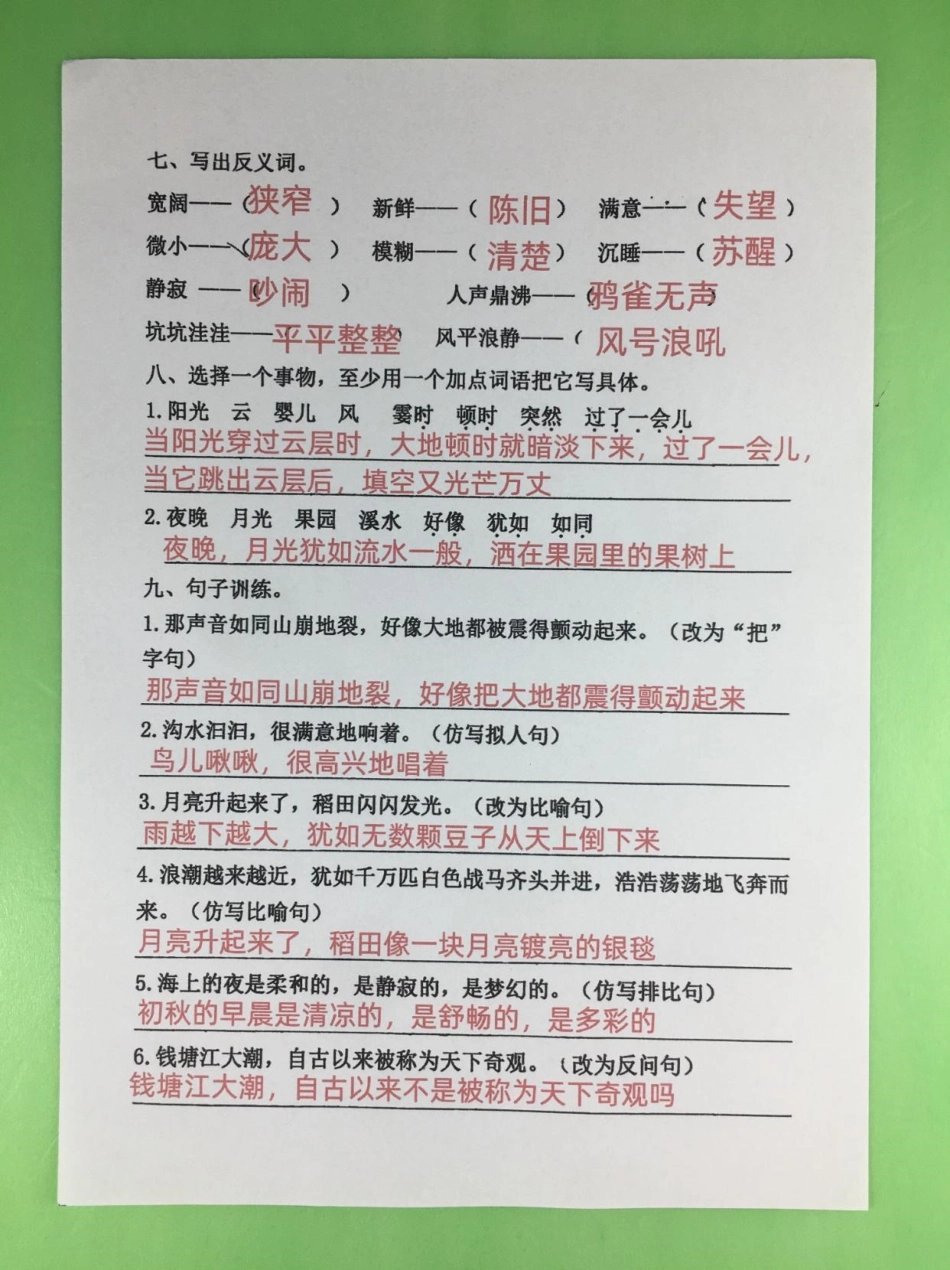 七、写出反义词。
宽阔——（狭窄） 新鲜——（陈旧） 满意——（失望）
微小——（庞大） 模糊——（清楚） 沉睡——（苏醒）
静寂 ——（吵闹） 人声鼎沸——（鸦雀无声）
坑坑洼洼——平平整整） 风平浪静——（风号浪吼
八、选择一个事物，至少用一个加点词语把它写具体。
1.阳光 云 婴儿 风 霎时 顿时 突然 过了一会儿
当阳光穿过云层时，大地顿时就暗淡下来，过了一会儿，
当它跳出云层后，填空又光芒万丈
2.夜晚 月光 果园 溪水 好像 犹如 如同
夜晚，月光犹如流水一般，洒在果园里的果树上
九、句子训练。
1.那声音如同山崩地裂，好像大地都被震得颤动起来。（改为“把”
字句）
那声音如同山崩地裂，好像把大地都震得颤动起来
2.沟水汩汩，很满意地响着。（仿写拟人句）
鸟儿啾啾，很高兴地唱着
3.月亮升起来了，稻田闪闪发光。（改为比喻句）
雨越下越大，犹如无数颗豆子从天上倒下来
4.浪潮越来越近，犹如千万匹白色战马齐头并进，浩浩荡荡地飞奔而
来。（仿写比喻句）
月亮升起来了，稻田像一块月亮镀亮的银毯
5.海上的夜是柔和的，是静寂的，是梦幻的。（仿写排比句）
初秋的早晨是清凉的，是舒畅的，是多彩的
6.钱塘江大潮，自古以来被称为天下奇观。（改为反问句）
钱塘江大潮，自古以来不是被称为天下奇观吗